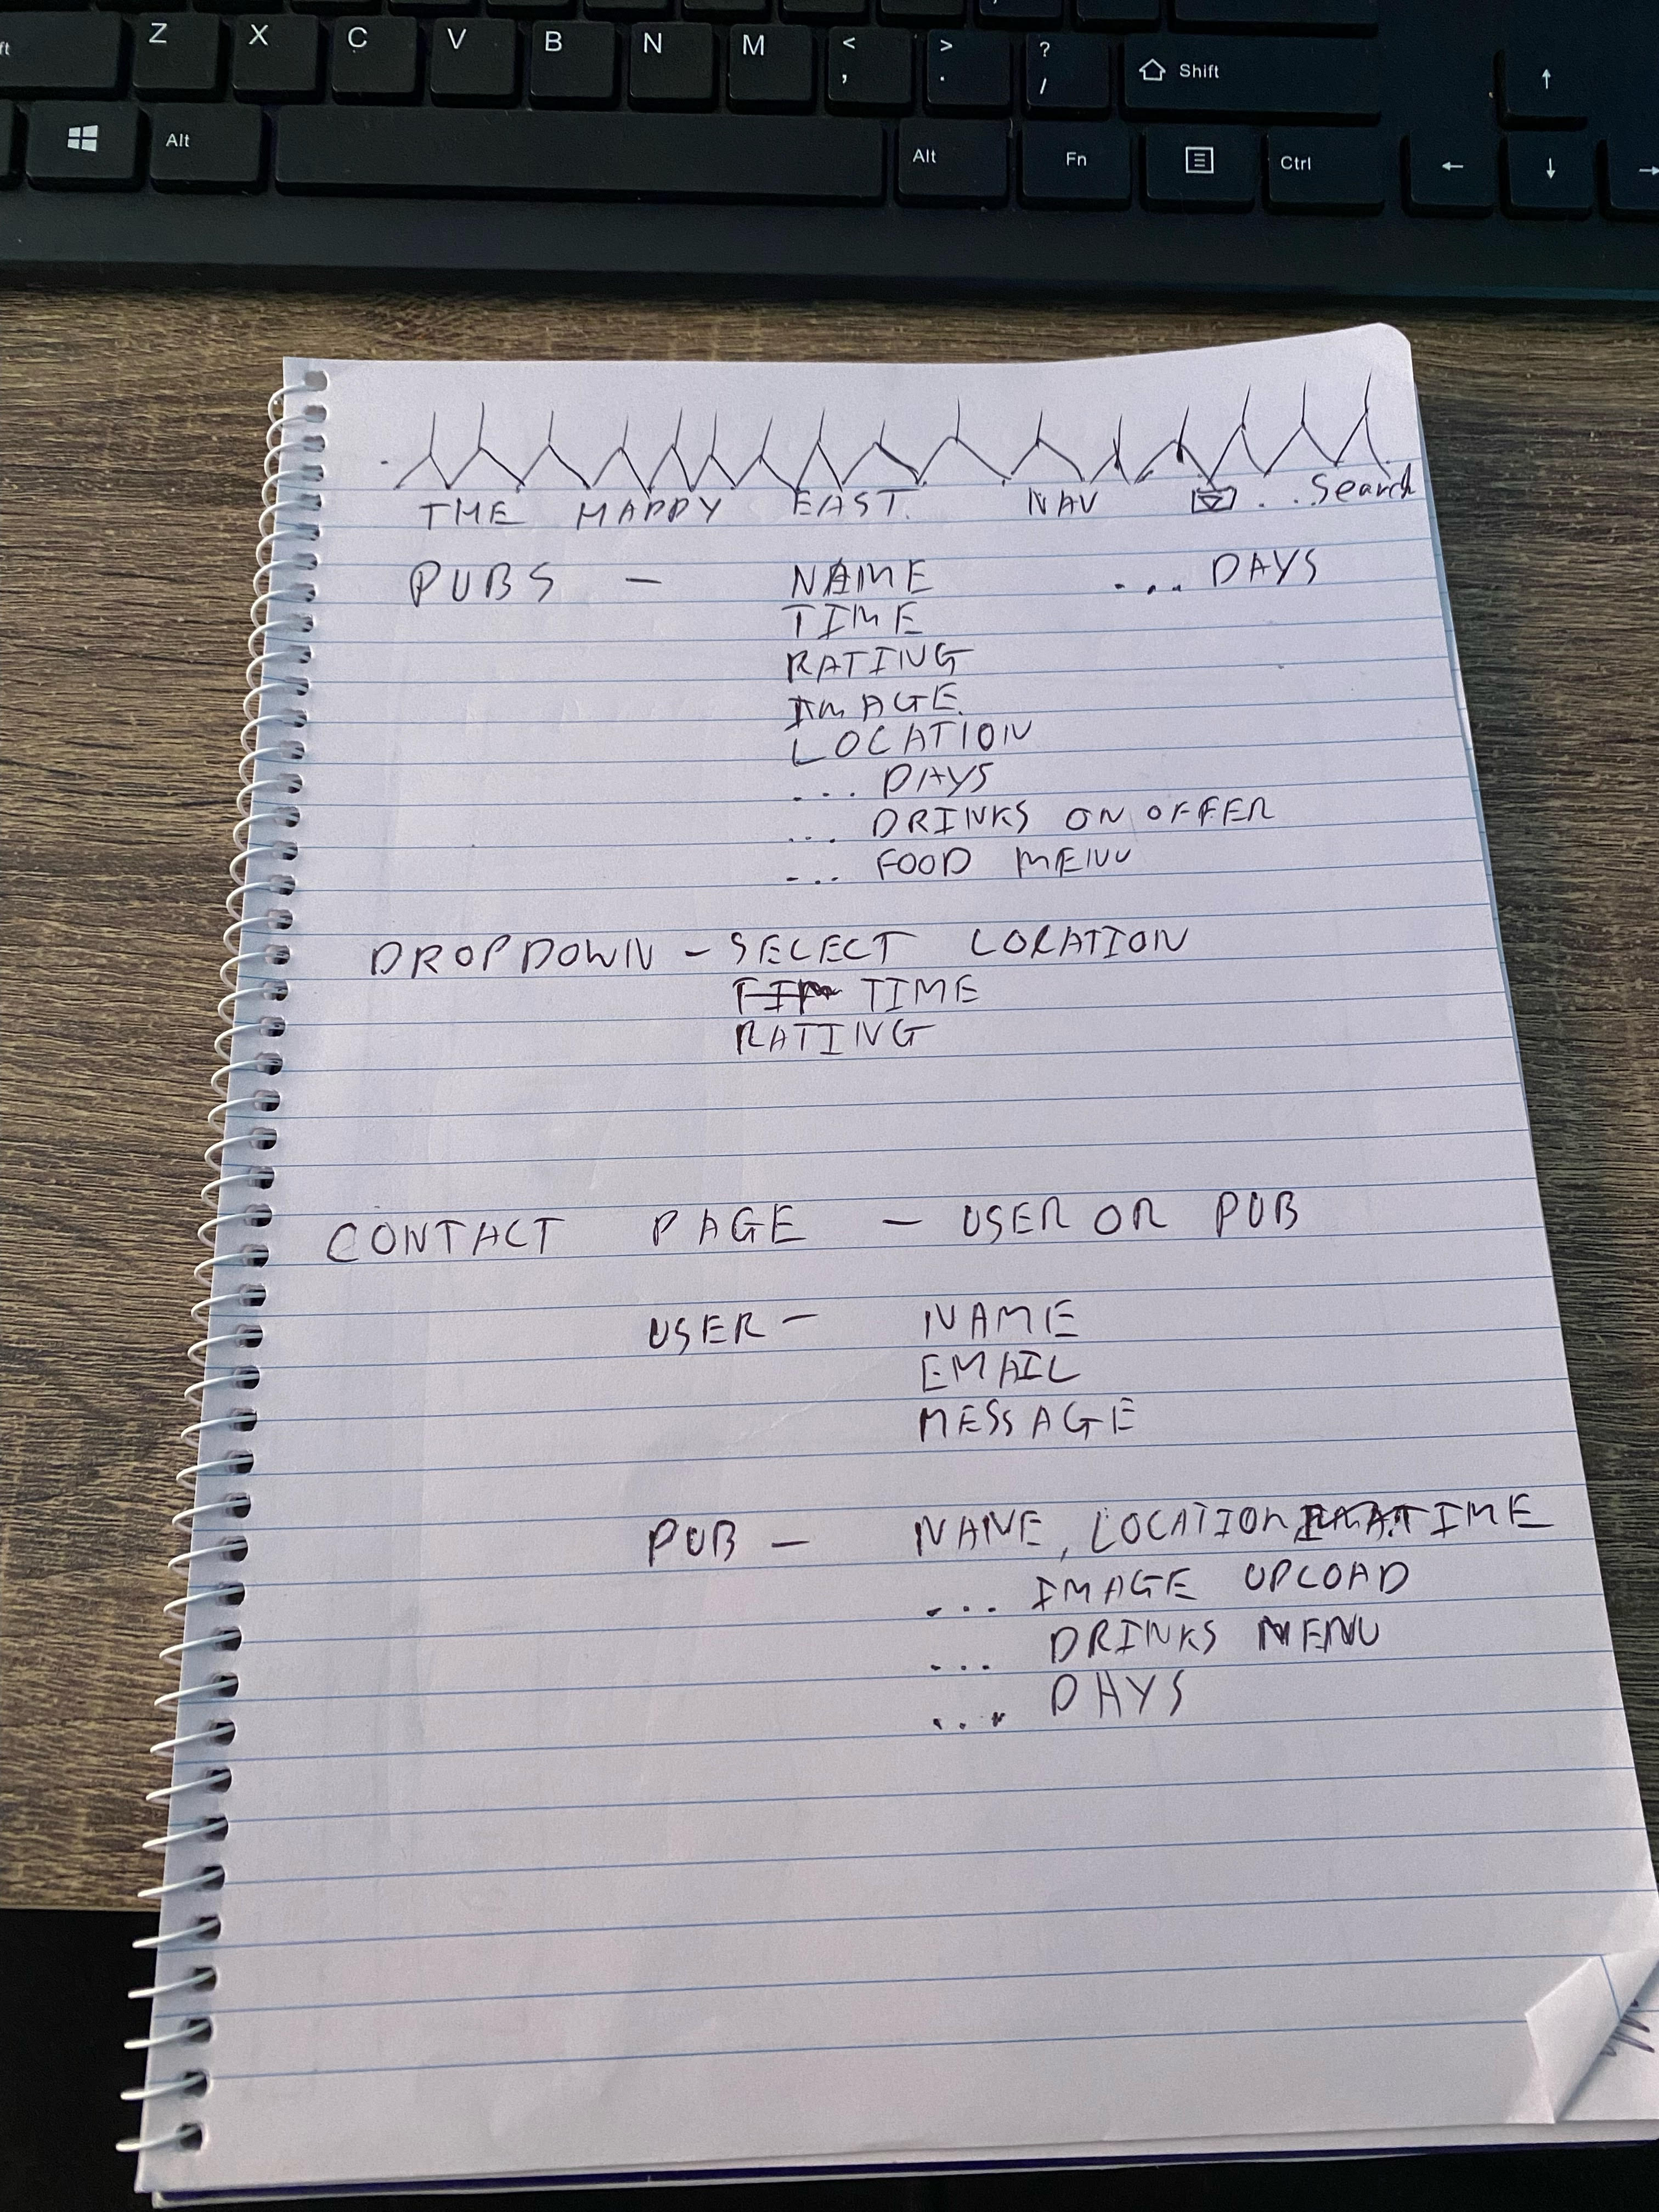 ft Z X C V B N M < , > . ? / Shift ↑
Alt Alt Fn Ctrl ← ↓ →
THE HAPPY EAST. NAV . . Search
PUBS - NAME ... DAYS
TIME
RATING
IMAGE
LOCATION
... DAYS
... DRINKS ON OFFER
... FOOD MENU
DROPDOWN - SELECT LOCATION
TIM TIME
RATING
CONTACT PAGE - USER OR PUB
USER - NAME
EMAIL
MESSAGE
PUB - NAME, LOCATION TIME
... IMAGE UPLOAD
... DRINKS MENU
... DAYS